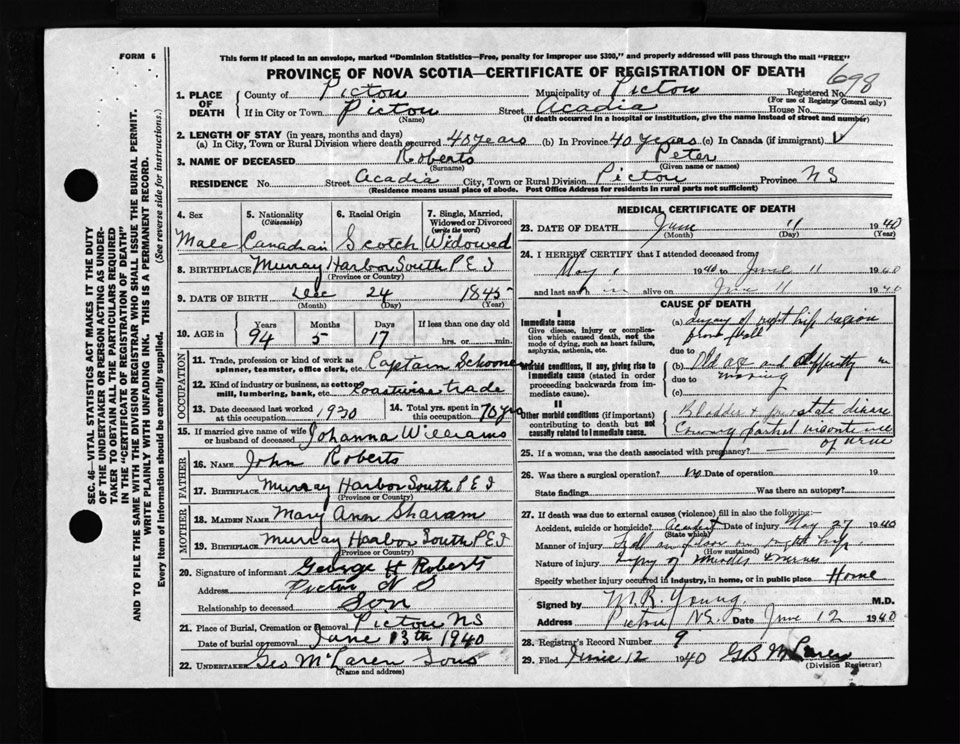 FORM 6
This form if placed in an envelope, marked "Dominion Statistics—Free, penalty for improper use $300," and properly addressed will pass through the mail "FREE"
PROVINCE OF NOVA SCOTIA—CERTIFICATE OF REGISTRATION OF DEATH
Registered No. 698
(For use of Registrar General only)
1. PLACE OF DEATH
County of Pictou Municipality of Pictou
If in City or Town Pictou Street Acadia House No.
(Name) (If death occurred in a hospital or institution, give the name instead of street and number)
2. LENGTH OF STAY (in years, months and days)
(a) In City, Town or Rural Division where death occurred 40 years (b) In Province 40 years (c) In Canada (if immigrant)
3. NAME OF DECEASED Roberts Peter
(Surname) (Given name or names)
RESIDENCE No. Street Acadia City, Town or Rural Division Pictou Province NS
(Residence means usual place of abode. Post Office Address for residents in rural parts not sufficient)
SEC. 46—VITAL STATISTICS ACT MAKES IT THE DUTY
OF THE UNDERTAKER OR PERSON ACTING AS UNDER-
TAKER TO OBTAIN ALL THE PARTICULARS REQUIRED
IN THE "CERTIFICATE OF REGISTRATION OF DEATH"
AND TO FILE THE SAME WITH THE DIVISION REGISTRAR WHO SHALL ISSUE THE BURIAL PERMIT.
WRITE PLAINLY WITH UNFADING INK. THIS IS A PERMANENT RECORD.
Every item of information should be carefully supplied. (See reverse side for instructions.)
4. Sex 5. Nationality (Citizenship) 6. Racial Origin 7. Single, Married, Widowed or Divorced (write the word)
Male Canadian Scotch Widowed
8. BIRTHPLACE Murray Harbor South P E I
(Province or Country)
9. DATE OF BIRTH Dec 24 1845
(Month) (Day) (Year)
10. AGE in Years Months Days If less than one day old
94 5 17 hrs. or min.
OCCUPATION
11. Trade, profession or kind of work as spinner, teamster, office clerk, etc. Captain Schooner
12. Kind of industry or business, as cotton mill, lumbering, bank, etc. Coastwise trade
13. Date deceased last worked at this occupation 1930 14. Total yrs. spent in this occupation 70 yrs
15. If married give name of wife or husband of deceased Johanna Williams
FATHER
16. NAME John Roberts
17. BIRTHPLACE Murray Harbor South P E I
(Province or Country)
MOTHER
18. MAIDEN NAME Mary Ann Sharam
19. BIRTHPLACE Murray Harbor South P E I
(Province or Country)
20. Signature of informant George H Roberts
Address Pictou N S
Relationship to deceased Son
21. Place of Burial, Cremation or Removal Pictou NS
Date of burial or removal June 13th 1940
22. UNDERTAKER Geo McLaren Sons
(Name and address)
MEDICAL CERTIFICATE OF DEATH
23. DATE OF DEATH June 11 1940
(Month) (Day) (Year)
24. I HEREBY CERTIFY that I attended deceased from
May 1 1940 to June 11 1940
and last saw him alive on June 11 1940
CAUSE OF DEATH
I
Immediate cause
Give disease, injury or complication which caused death, not the mode of dying, such as heart failure, asphyxia, asthenia, etc.
(a) Injury of right hip region from fall
due to
Morbid conditions, if any, giving rise to immediate cause (stated in order proceeding backwards from immediate cause).
(b) Old age and difficulty in
due to moving
(c)
II
Other morbid conditions (if important) contributing to death but not causally related to immediate cause.
Bladder & prostate disease
Causing partial incontinence
of urine
25. If a woman, was the death associated with pregnancy? —
26. Was there a surgical operation? No Date of operation 19
State findings Was there an autopsy?
27. If death was due to external causes (violence) fill in also the following:—
Accident, suicide or homicide? Accident Date of injury May 27 1940
(State which)
Manner of injury Fall on floor on right hip
(How sustained)
Nature of injury Injury of muscles & nerves
Specify whether injury occurred in industry, in home, or in public place Home
Signed by M. R. Young M.D.
Address Pictou NS. Date June 12 1940
28. Registrar's Record Number 9
29. Filed June 12 1940 GB McLaren
(Division Registrar)